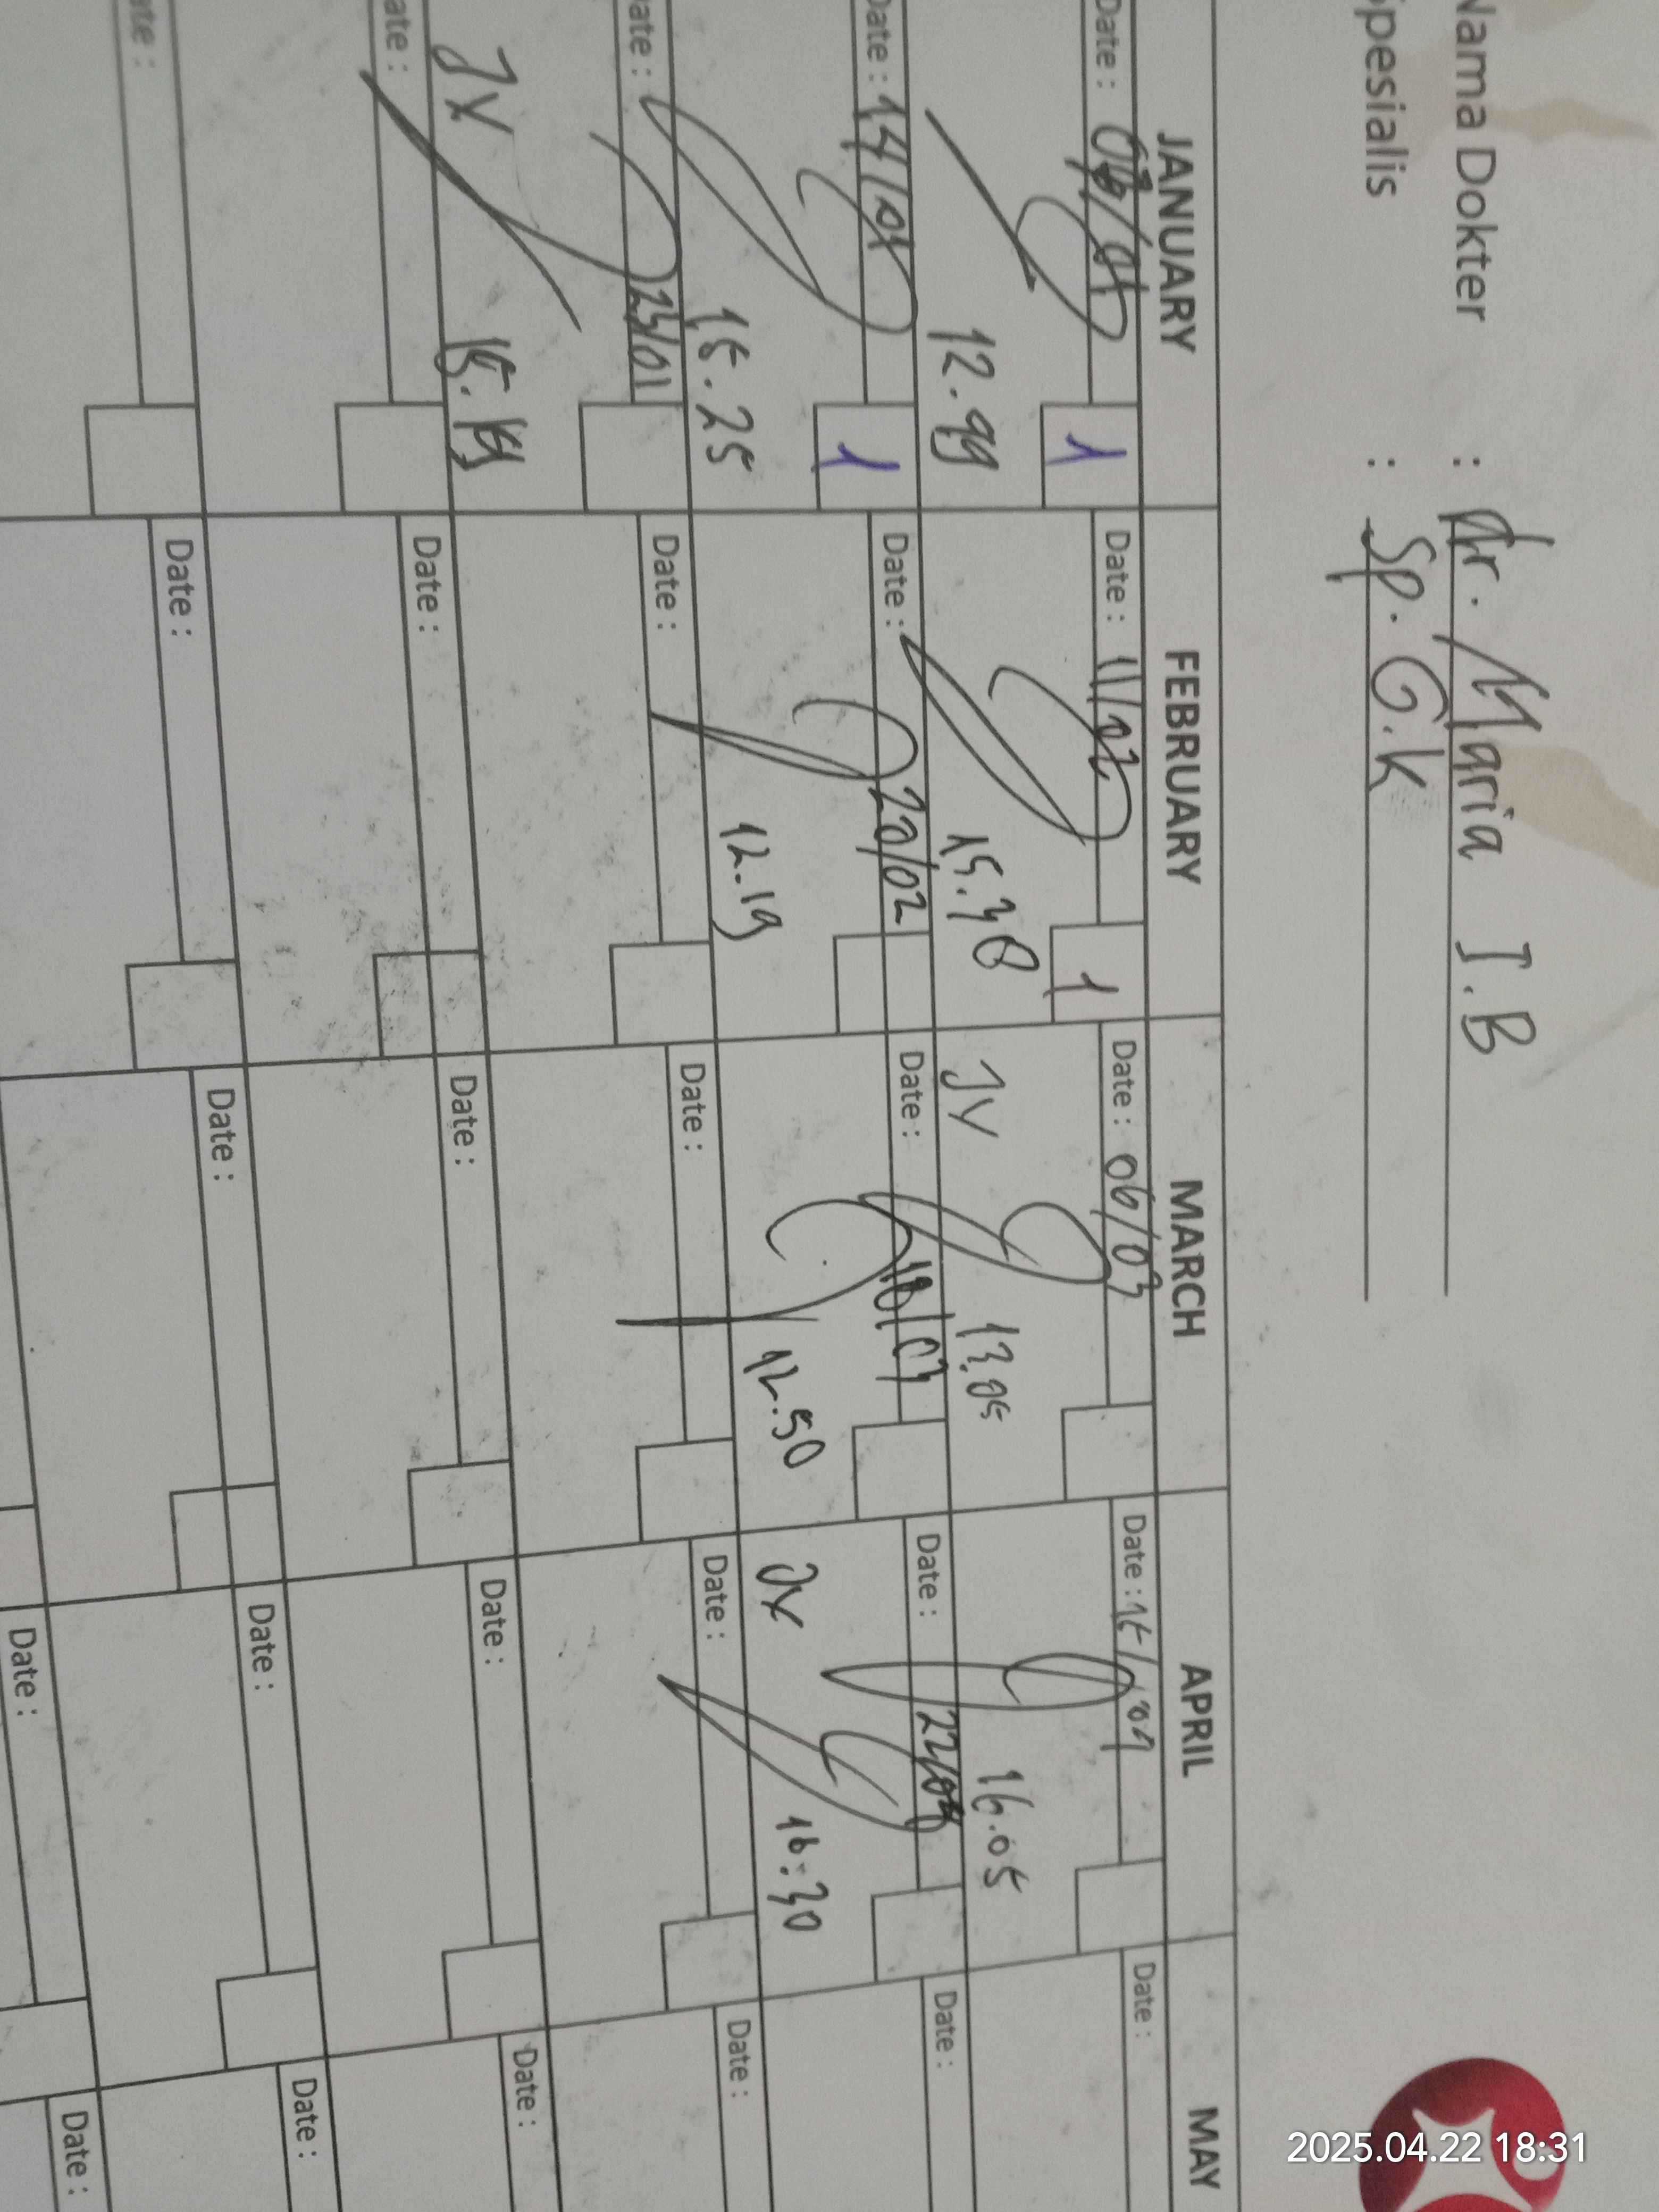 Nama Dokter : dr. Maria I.B
Spesialis : Sp. G.k
JANUARY FEBRUARY MARCH APRIL MAY
Date : 1 Date : 11/02 1 Date : 06/03 Date : 15/04 Date :
15.38 13.05 16.05
Date : 14/01 1 Date : 20/02 Date : 18/03 Date : 22/04 Date :
15.25 12.19 12.50 16.30
JV JV
Date : 23/01 Date : Date : Date : Date :
JV
Date : Date : Date : Date : Date :
Date : Date : Date : Date : Date :
Date : Date :
2025.04.22 18:31